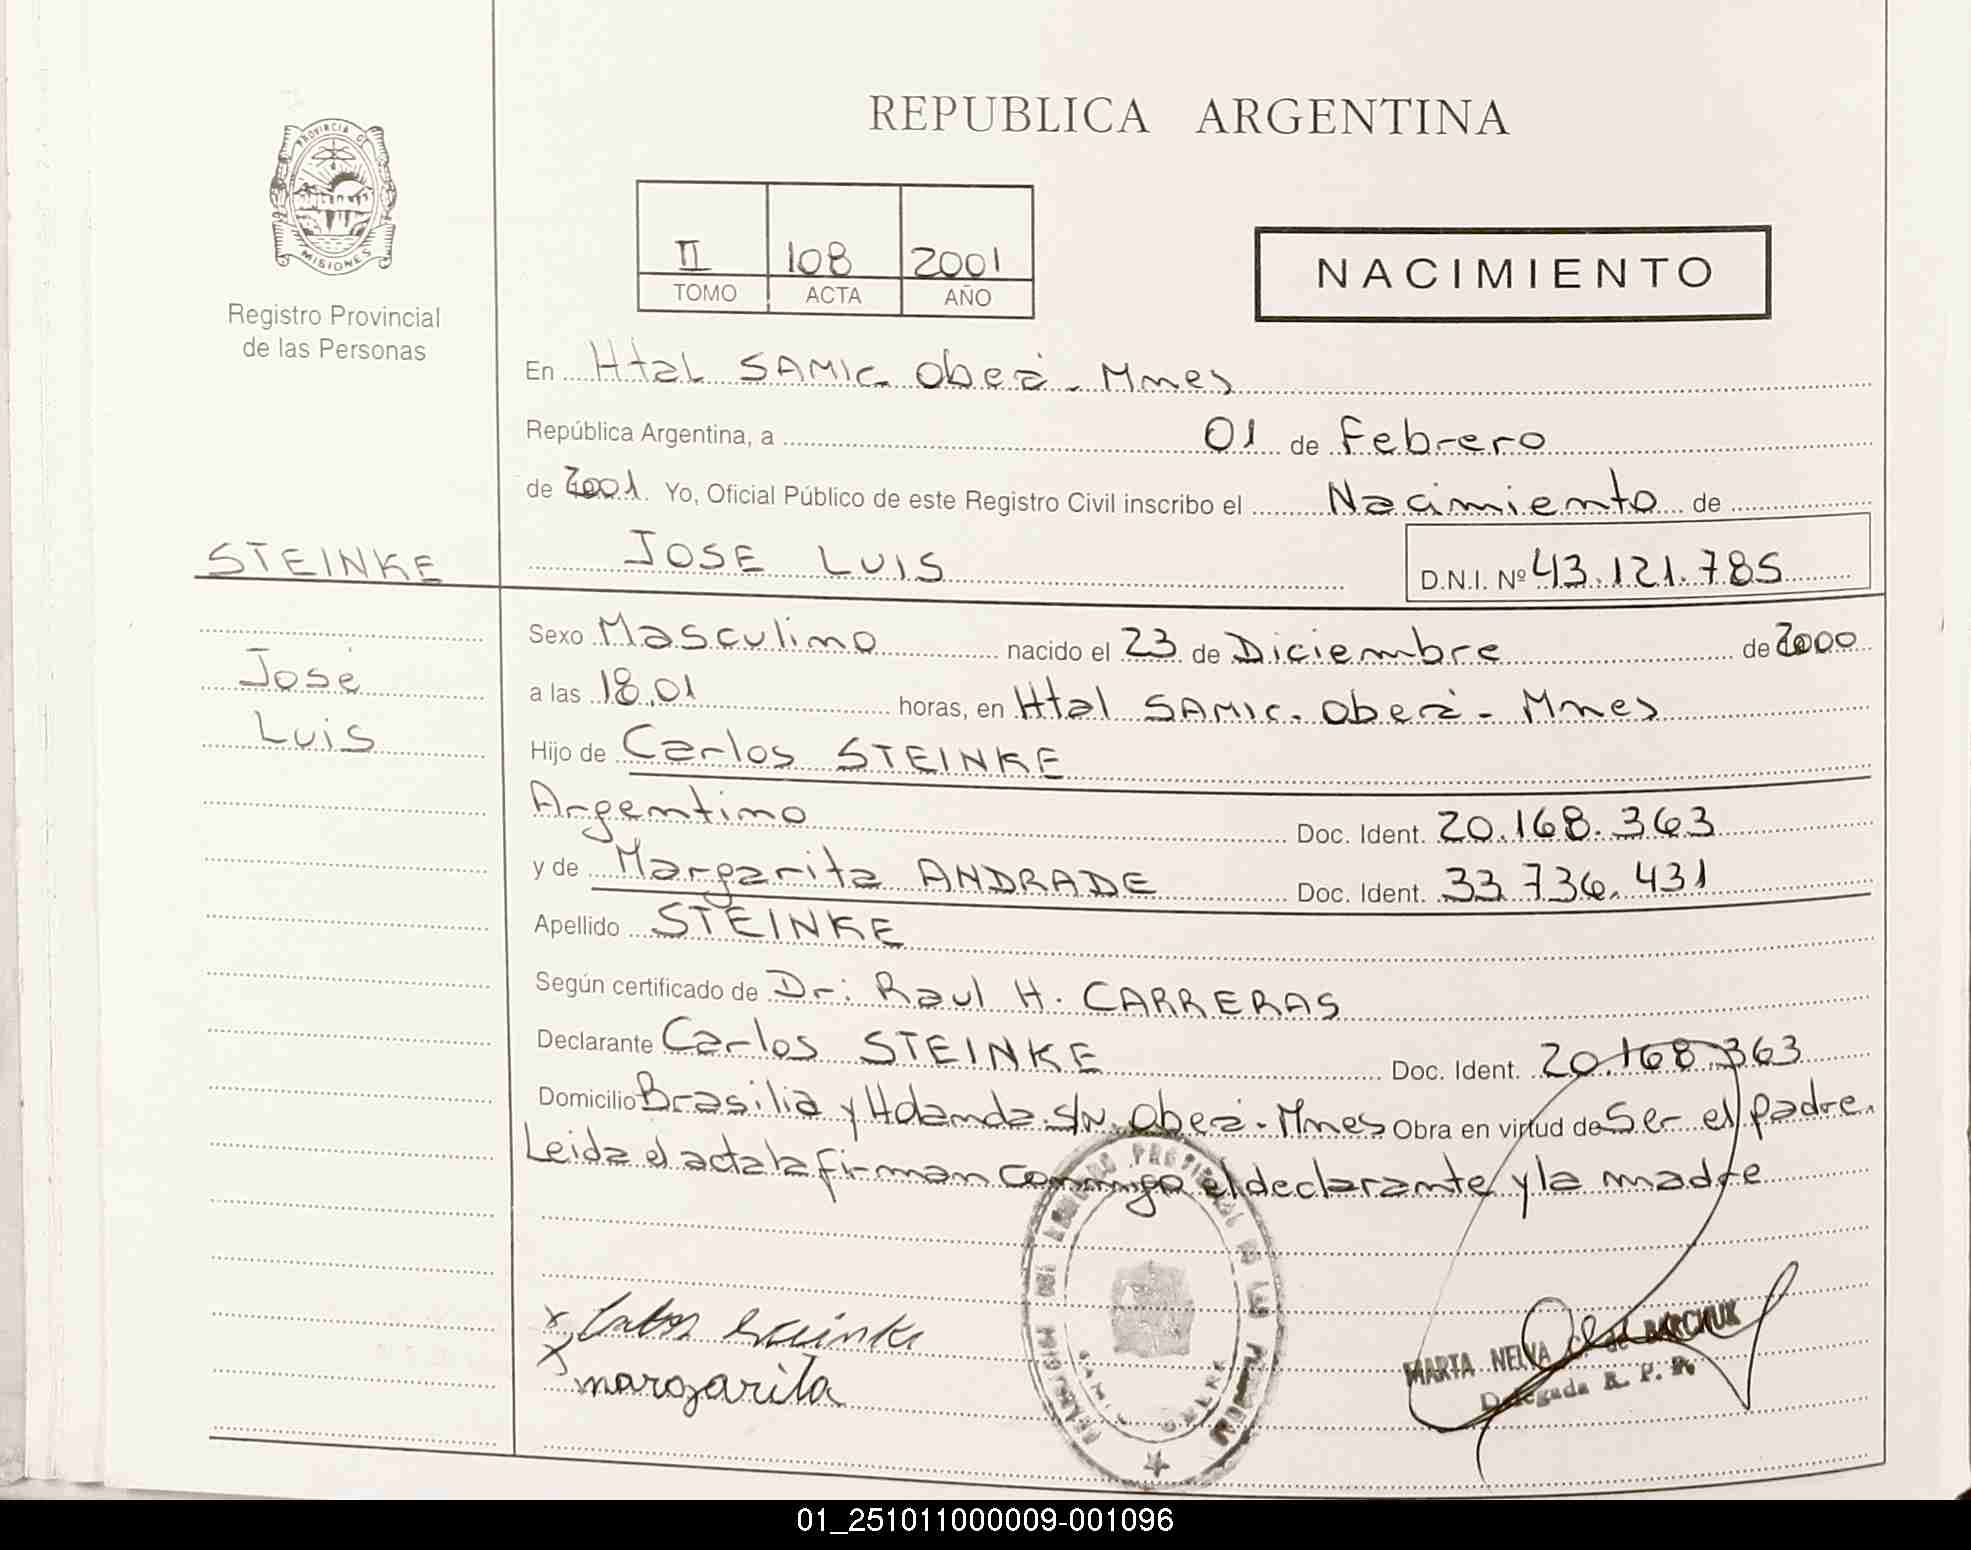 REPUBLICA ARGENTINA
PROVINCIA DE
MISIONES
Registro Provincial
de las Personas
II 108 2001
TOMO ACTA AÑO
NACIMIENTO
En Htal SAMIC. Oberá - Mnes
República Argentina, a 01 de Febrero
de 2001. Yo, Oficial Público de este Registro Civil inscribo el Nacimiento de
STEINKE
JOSE LUIS D.N.I. Nº 43.121.785
José
Luis
Sexo Masculino nacido el 23 de Diciembre de 2000
a las 18,01 horas, en Htal SAMIC. Oberá - Mnes
Hijo de Carlos STEINKE
Argentino Doc. Ident. 20.168.363
y de Margarita ANDRADE Doc. Ident. 33.736.431
Apellido STEINKE
Según certificado de Dr: Raul H. CARRERAS
Declarante Carlos STEINKE Doc. Ident. 20.168.363
Domicilio Brasilia y Holanda S/N. Oberá - Mnes Obra en virtud de Ser el padre.
Leida el acta la firman conmigo el declarante y la madre
x Carlos Steinke
x margarita
MARTA NELVA C. de BARCHUK
Delegada R. P. P.
01_251011000009-001096